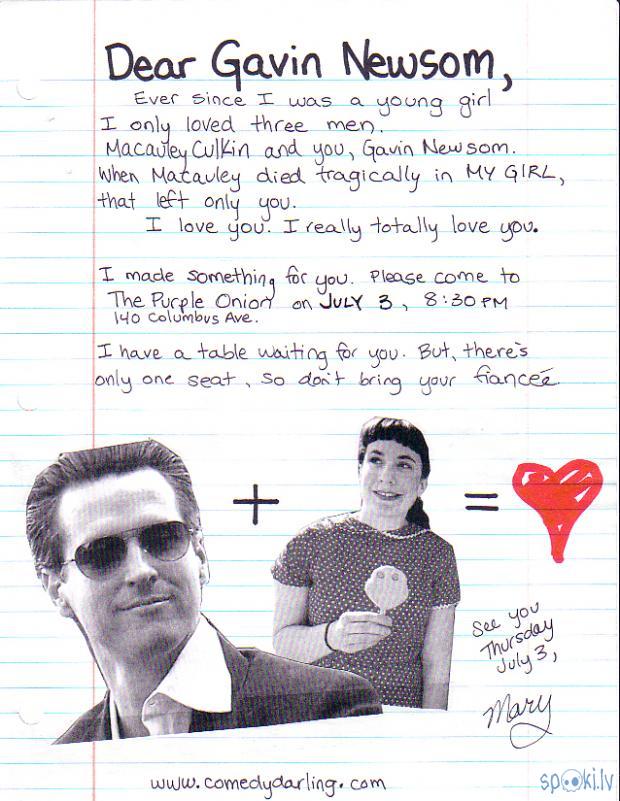 Dear Gavin Newsom,
Ever since I was a young girl
I only loved three men.
Macauley Culkin and you, Gavin Newsom.
When Macauley died tragically in MY GIRL,
that left only you.
I love you. I really totally love you.
I made something for you. Please come to
The Purple Onion on JULY 3, 8:30 PM
140 Columbus Ave.
I have a table waiting for you. But, there's
only one seat, so don't bring your fianceé.
+ =
See you
Thursday
July 3,
Mary
www.comedydarling.com
spoki.lv